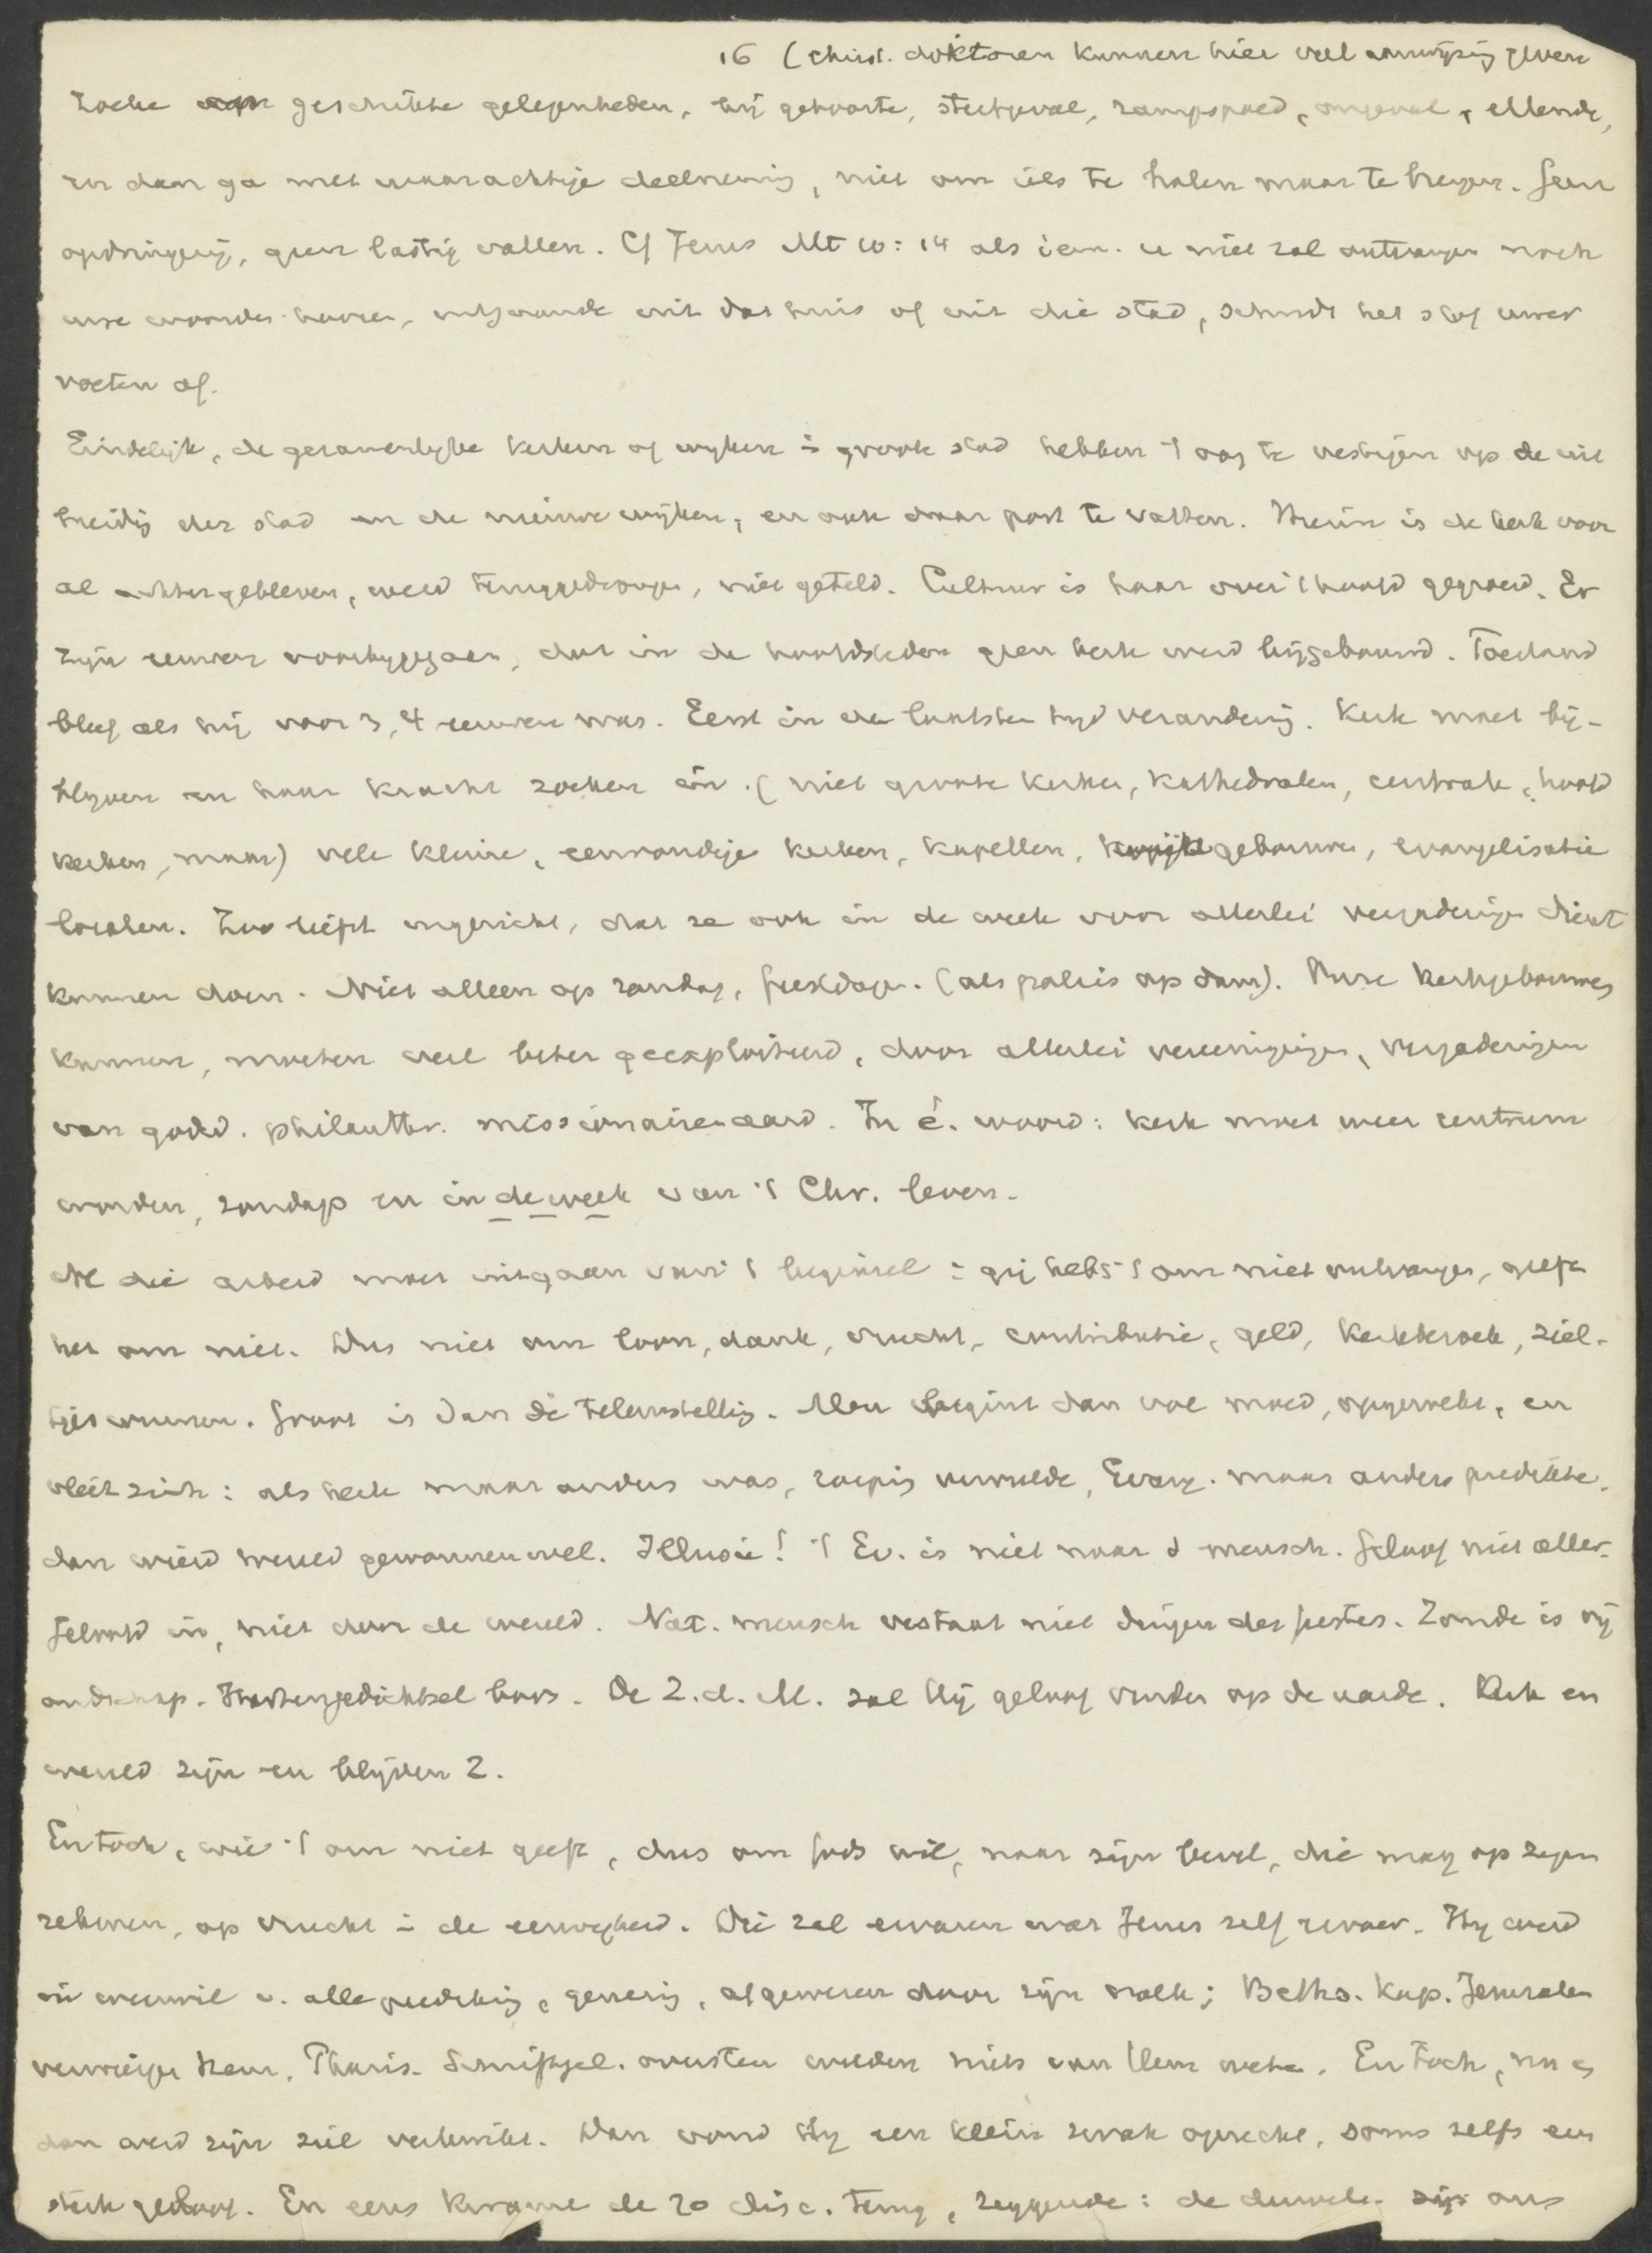 16 (christ. doktoren kunnen hier veel aanwijzing geven
zoeke geschikte gelegenheden, bij geboorte, sterfgeval, rampspoed, ongeval, ellende,
en dan ga met waarachtige deelneming, niet om iets te halen maar te brengen. Geen
opdringerij, geen lastig vallen. Cf Jezus Mt 10:14 als iem. u niet zal ontvangen noch
uwe woorden hooren, uitgaande uit dat huis of uit die stad, schudt het stof uwer
voeten af.
Eindelijk, de gezamenlijke kerken of wijken i groote stad hebben 't oog te vestigen op de uit
breidig der stad en de nieuwe wijken, en ook daar post te vatten. Hierin is de kerk voor
al achtergebleven, werd teruggedrongen, niet geteld. Cultuur is haar over 't hoofd gegroeid. Er
zijn eeuwen voorbijgegaan, dat in de hoofdsteden geen kerk werd bijgebouwd. Toestand
bleef als hij voor 3, 4 eeuwen was. Eerst in den laatsten tijd verandering. Kerk moet bij-
blijven en haar kracht zoeken in (niet groote kerken, kathedralen, centrale, hoofd
kerken, maar) vele kleine, eenvoudige kerken, kapellen, gebouwen, evangelisatie
localen. Zoo liefst ingericht, dat ze ook in de week voor allerlei vergaderingen dienst
kunnen doen. Niet alleen op zondag, feestdagen. (als paleis op dam). Onze kerkgebouwen
kunnen, moeten veel beter geexploiteerd, door allerlei vereenigingen, vergaderingen
van godsd. philanthr. missionairen aard. In é. woord: kerk moet weer centrum
worden, zondags en in de week van 't Chr. leven.
Al die arbeid moet uitgaan van 't beginsel: gij hebt 't om niet ontvangen, geeft
het om niet. Dus niet om loon, dank, vrucht, contributie, geld, kerkbezoek, ziel-
tjes winnen. Groot is dan de teleurstellig. Men begint dan vol moed, opgewekt, en
vleit zich: als kerk maar anders was, roepig vervulde, Evang. maar anders predikte,
dan wierd wereld gewonnen wel. Illusie! 't Ev. is niet naar d mensch. Geloof niet aller.
Geloofd in, niet door de wereld. Nat. mensch verstaat niet dingen des Geestes. Zonde is vij
andschap. Hartengedichtsel boos. De Z.d.M. zal Hij geloof vinden op de aarde. Kerk en
wereld zijn en blijven 2.
En toch, wie 't om niet geeft, dus om Gods wil, naar zijn bevel, die mag op zegen
rekenen, op vrucht i de eeuwigheid. Die zal ervaren wat Jezus zelf ervoer. Hij werd
in weerwil v. alle prediking, genezing, afgewezen door zijn volk; Beths. Kap. Jeruzalem
verwierpen hem. Phariz. Schriftgel. oversten wilden niets van Hem weten. En toch, nu en
dan werd zijn ziel verkwikt. Dan vond Hij een klein zwak oprecht, soms zelfs een
sterk geloof. En eens kwamen de 70 disc. terug, zeggende: de duivelen zijn ons